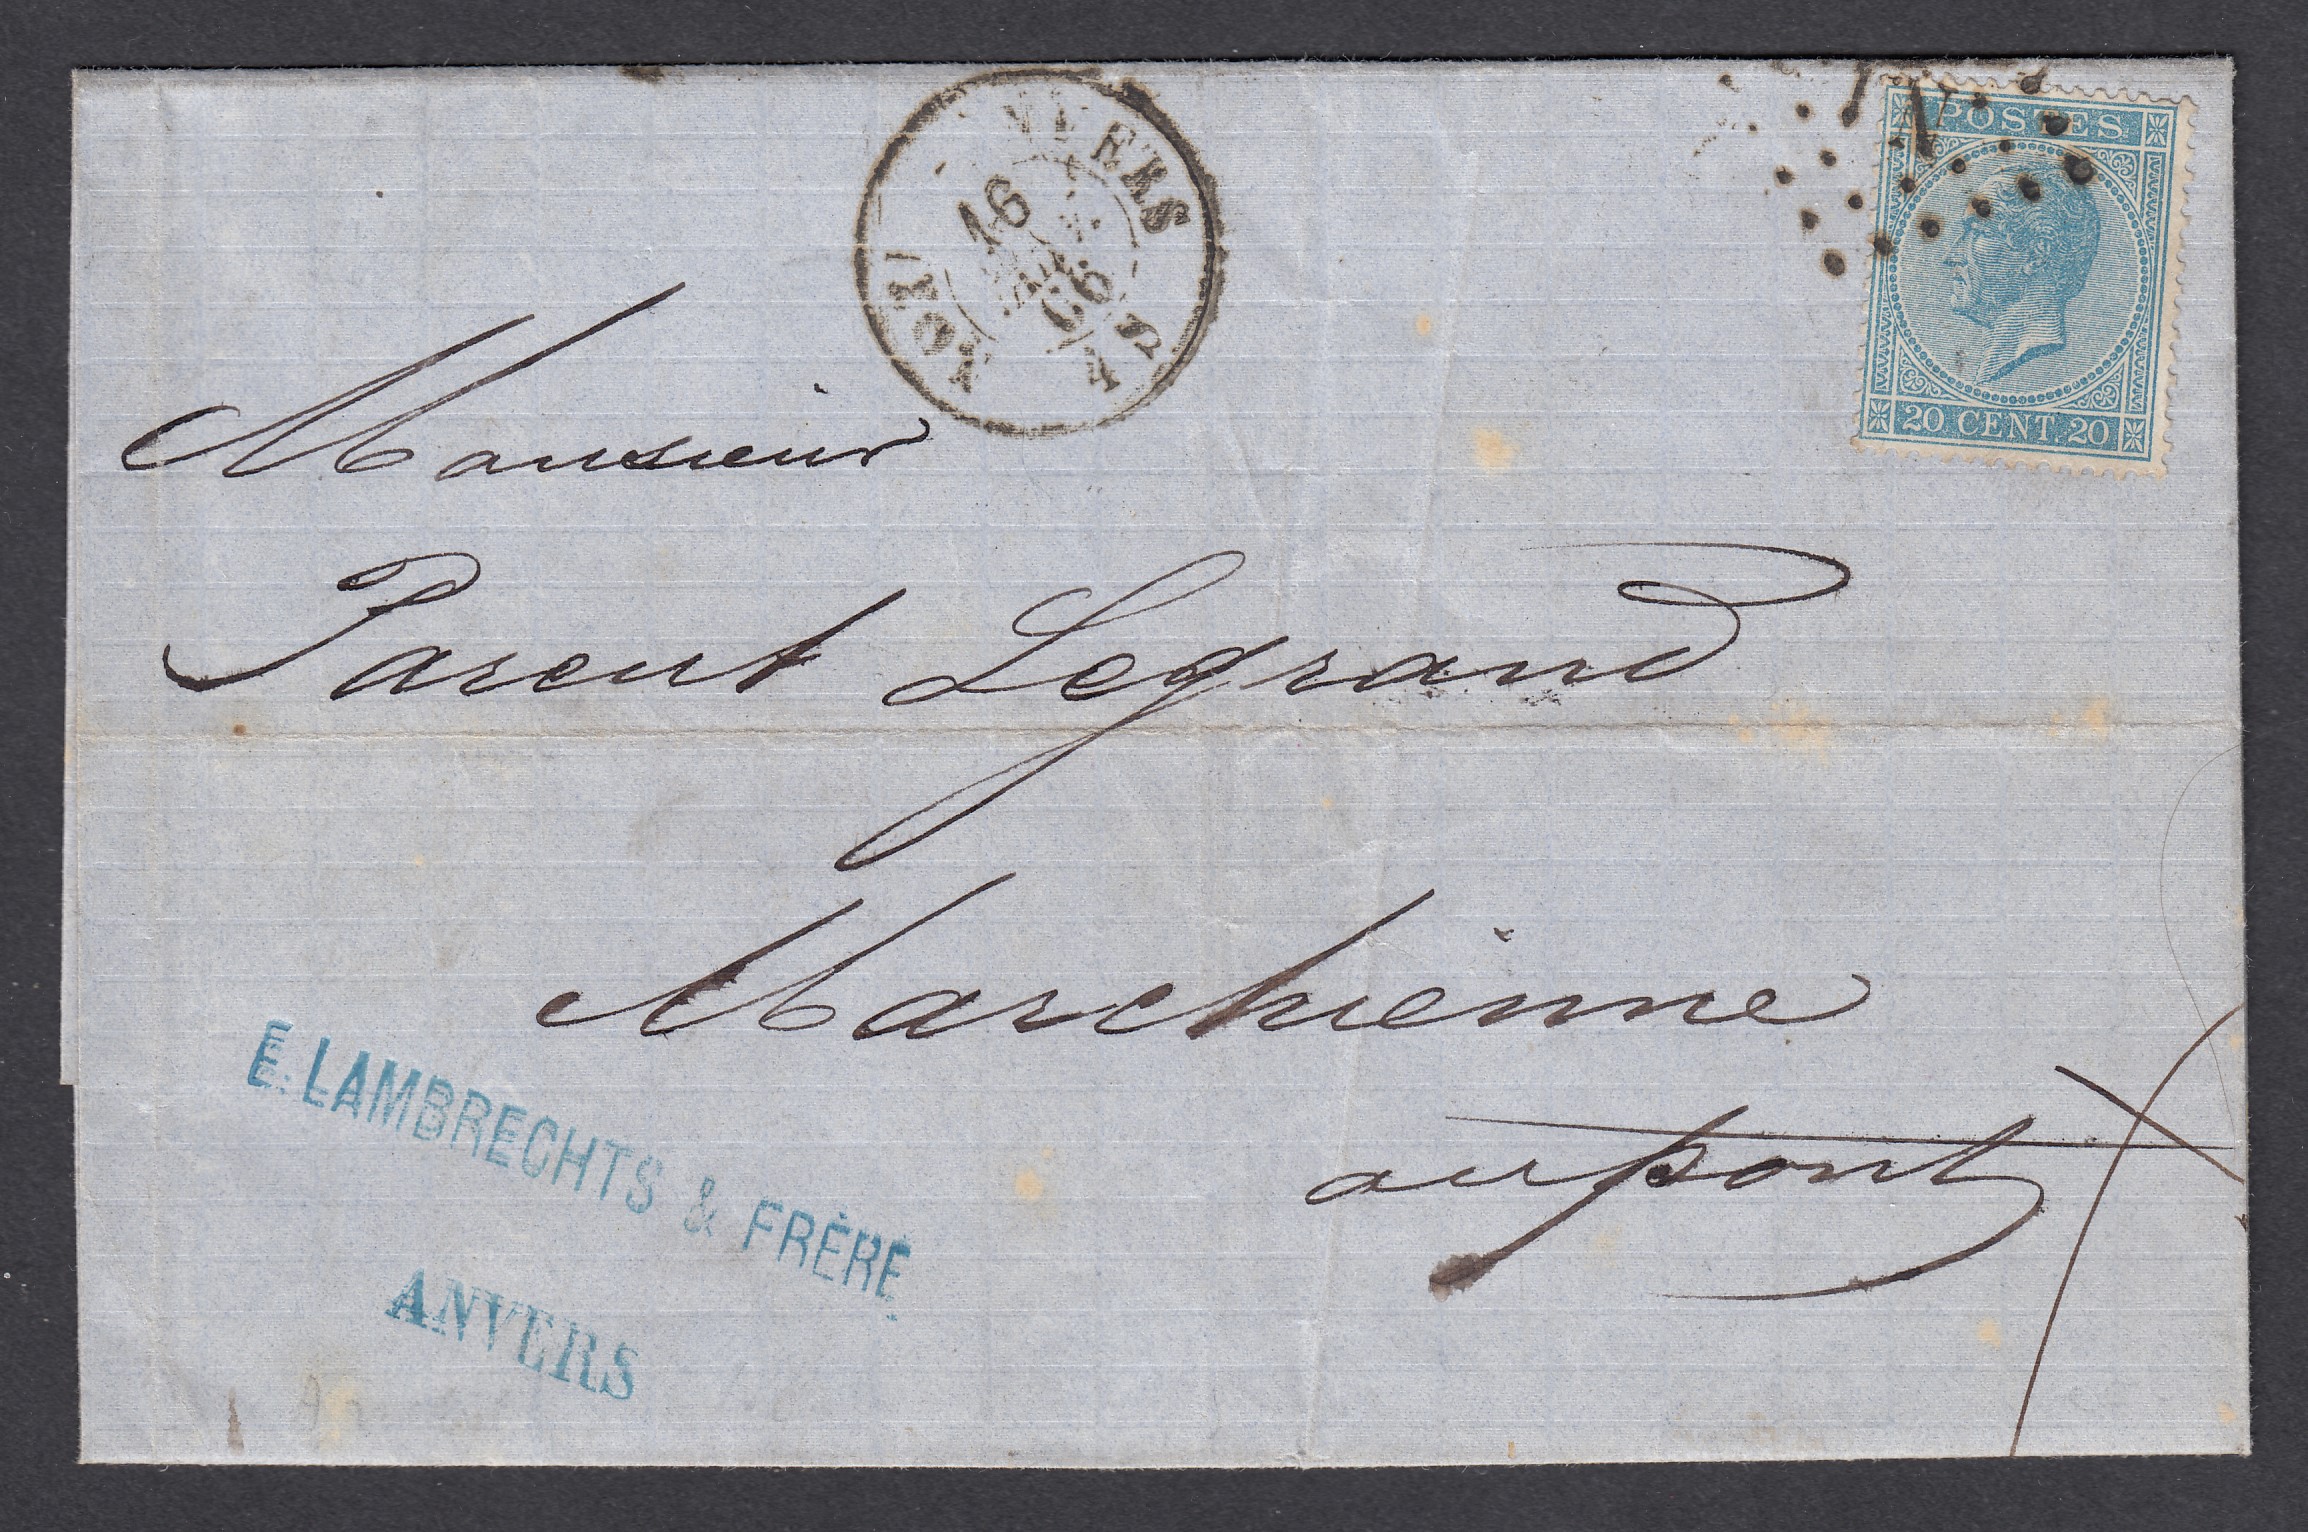 POSTES
20 CENT. 20
16
66
Monsieur
Parent Legrand
Marchienne
au pont
E. LAMBRECHTS & FRÈRE
ANVERS